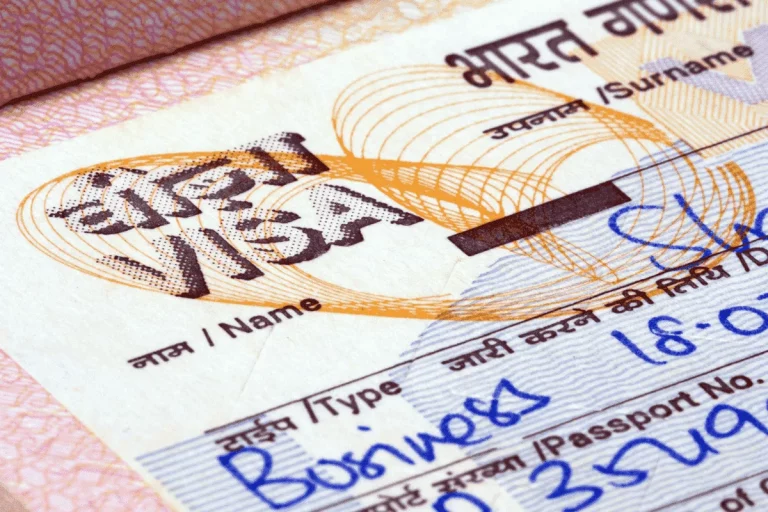 भारत गणरा
उपनाम /Surname
वीज़ा
VISA
नाम / Name
जारी करने की तिथि /D
18.0
टाईप /Type
Business
पोर्ट संख्या /Passport No.
3549
of